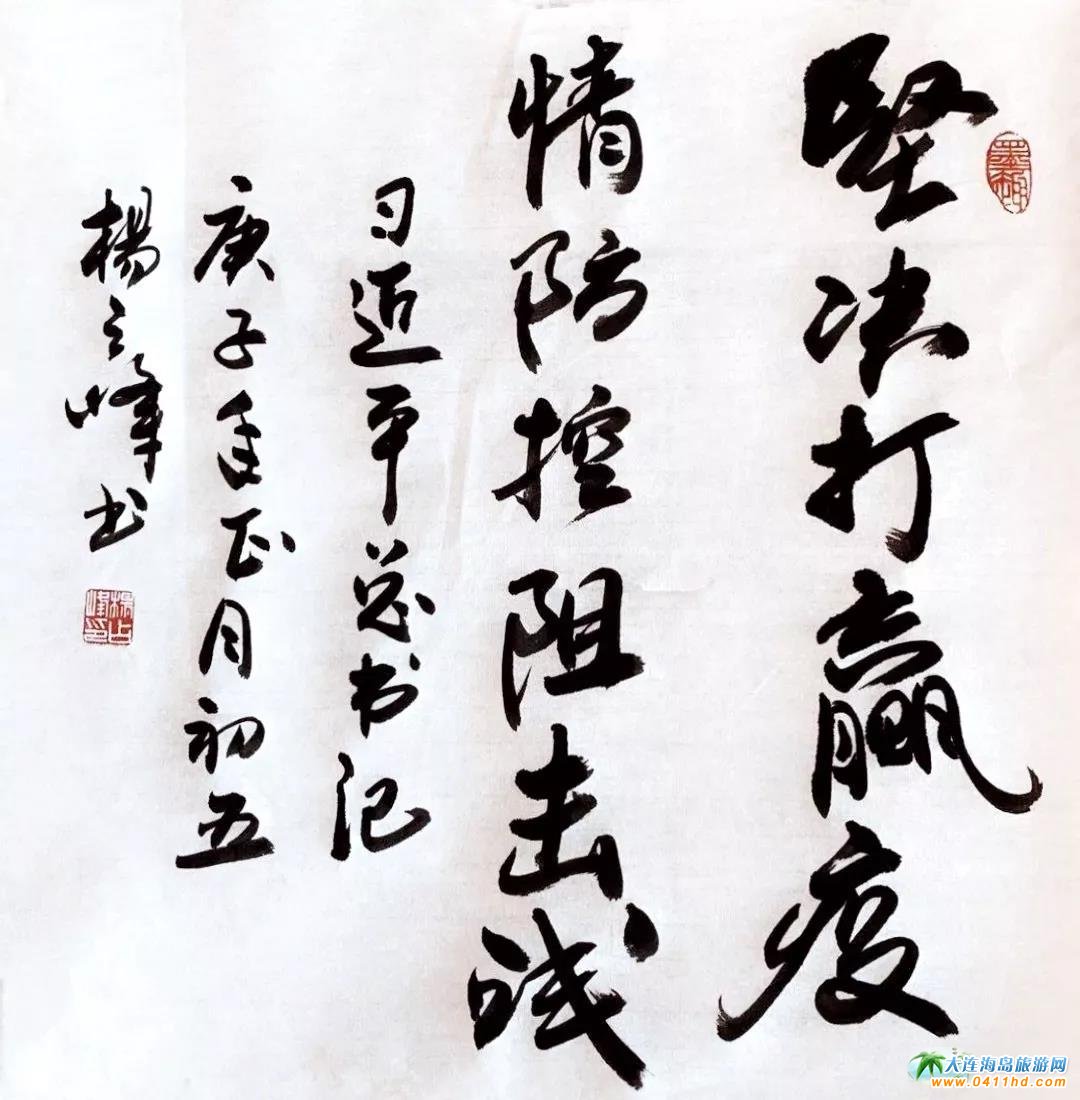 坚决打赢疫
情防控阻击战
习近平总书记
庚子年正月初五
楊之峰书
大连海岛旅游网
www.0411hd.com